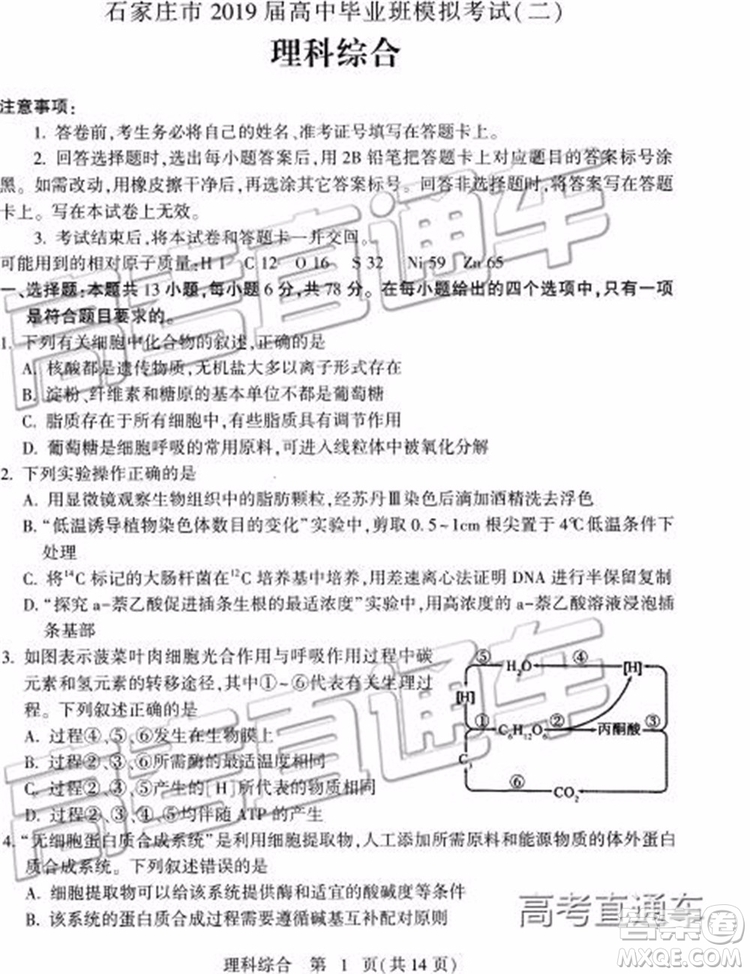 石家庄市 2019 届高中毕业班模拟考试(二)
理科综合
注意事项:
1. 答卷前,考生务必将自己的姓名、准考证号填写在答题卡上。
2. 回答选择题时,选出每小题答案后,用 2B 铅笔把答题卡上对应题目的答案标号涂
黑。如需改动,用橡皮擦干净后,再选涂其它答案标号。回答非选择题时,将答案写在答题
卡上。写在本试卷上无效。
3. 考试结束后,将本试卷和答题卡一并交回。
可能用到的相对原子质量:H 1 C 12 O 16 S 32 Ni 59 Zn 65
一、选择题:本题共 13 小题,每小题 6 分,共 78 分。在每小题给出的四个选项中,只有一项
是符合题目要求的。
1. 下列有关细胞中化合物的叙述,正确的是
A. 核酸都是遗传物质,无机盐大多以离子形式存在
B. 淀粉、纤维素和糖原的基本单位不都是葡萄糖
C. 脂质存在于所有细胞中,有些脂质具有调节作用
D. 葡萄糖是细胞呼吸的常用原料,可进入线粒体中被氧化分解
2. 下列实验操作正确的是
A. 用显微镜观察生物组织中的脂肪颗粒,经苏丹Ⅲ染色后用酒精洗去浮色
B. “低温诱导植物染色体数目的变化”实验中,剪取 0.5~1cm 根尖置于 4℃低温条件下
处理
C. 将¹⁴C 标记的大肠杆菌在¹²C 培养基中培养,用差速离心法证明 DNA 进行半保留复制
D. “探究 a-萘乙酸促进插条生根的最适浓度”实验中,用高浓度的 a-萘乙酸溶液浸泡插
条基部
3. 如图表示菠菜叶肉细胞光合作用与呼吸作用过程中碳
元素和氢元素的转移途径,其中①~⑥代表有关生理过
程。下列叙述正确的是
A. 过程④、⑤发生在生物膜上
B. 过程③、⑥所需酶的最适温度相同
C. 过程②、③、⑤产生的[H]所代表的物质相同
D. 过程②、④、⑤均伴随 ATP 的产生
⑤ H₂O ④ [H]
[H] ① C₆H₁₂O₆ ② 丙酮酸 ③
⑥
CO₂
4. “无细胞蛋白质合成系统”是利用细胞提取物,人工添加所需原料和能源物质的体外蛋白
质合成系统。下列叙述错误的是
A. 细胞提取物可以给该系统提供酶和适宜的酸碱度等条件
B. 该系统的蛋白质合成需要遵循碱基互补配对原则
理科综合 第 1 页(共 14 页)
高考直通车
高考直通车
高考直通车